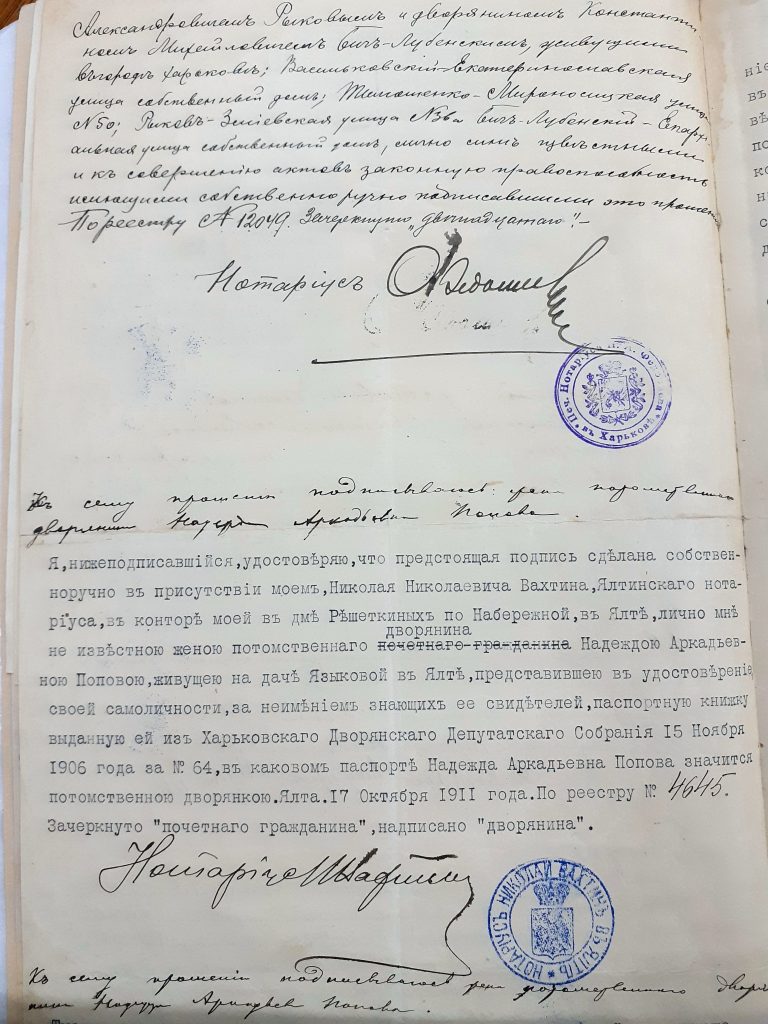 Александровичемъ Рыковымъ и дворяниномъ Константи-
номъ Михайловичемъ Бичъ-Лубенскимъ, живущими
въ городѣ Харьковѣ; Васильковскій-Екатеринославская
улица собственный домъ; Тимошенко-Мироносицкая улица
№50; Рыковъ-Зміевская улица №36а Бичъ-Лубенскій-Епархі-
альная улица собственный домъ, лично мнѣ извѣстными
и къ совершенію актовъ законную правоспособность
имѣющими собственноручно подписавшими это прошеніе
По реестру №12049. Зачеркнуто „двѣнадцатаго".-
Нотаріусъ
Печ. Нотаріуса въ Харьковѣ
Къ сему прошенію подписываюсь: жена потомственнаго
дворянина Надежда Аркадьевна Попова.
Я,нижеподписавшійся,удостовѣряю,что предстоящая подпись сдѣлана собствен-
норучно въ присутствіи моемъ,Николая Николаевича Вахтина,Ялтинскаго нота-
ріуса,въ конторѣ моей въ дмѣ Рѣшеткиныхъ по Набережной,въ Ялтѣ,лично мнѣ
дворянина
не извѣстною женою потомственнаго почетнаго гражданина Надеждою Аркадьев-
ною Поповою,живущею на дачѣ Языковой въ Ялтѣ,представившею въ удостовѣреніе
своей самоличности,за неимѣніемъ знающихъ ее свидѣтелей,паспортную книжку
выданную ей изъ Харьковскаго Дворянскаго Депутатскаго Собранія 15 Ноября
1906 года за № 64,въ каковомъ паспортѣ Надежда Аркадьевна Попова значится
потомственною дворянкою.Ялта.17 Октября 1911 года.По реестру № 4645.
Зачеркнуто "почетнаго гражданина",надписано "дворянина".
Нотаріусъ Н Вахтинъ
НОТАРІУСЪ НИКОЛАЙ ВАХТИНЪ ВЪ ЯЛТѢ
Къ сему прошенію подписываюсь жена потомственнаго дворя-
нина Надежда Аркадьевна Попова.